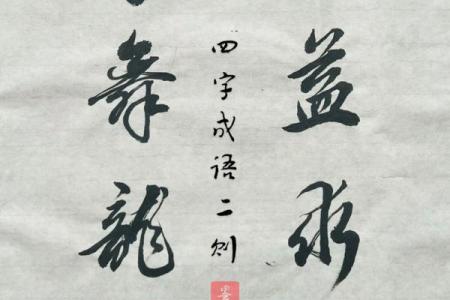 益求
四字成语二则
舞龍